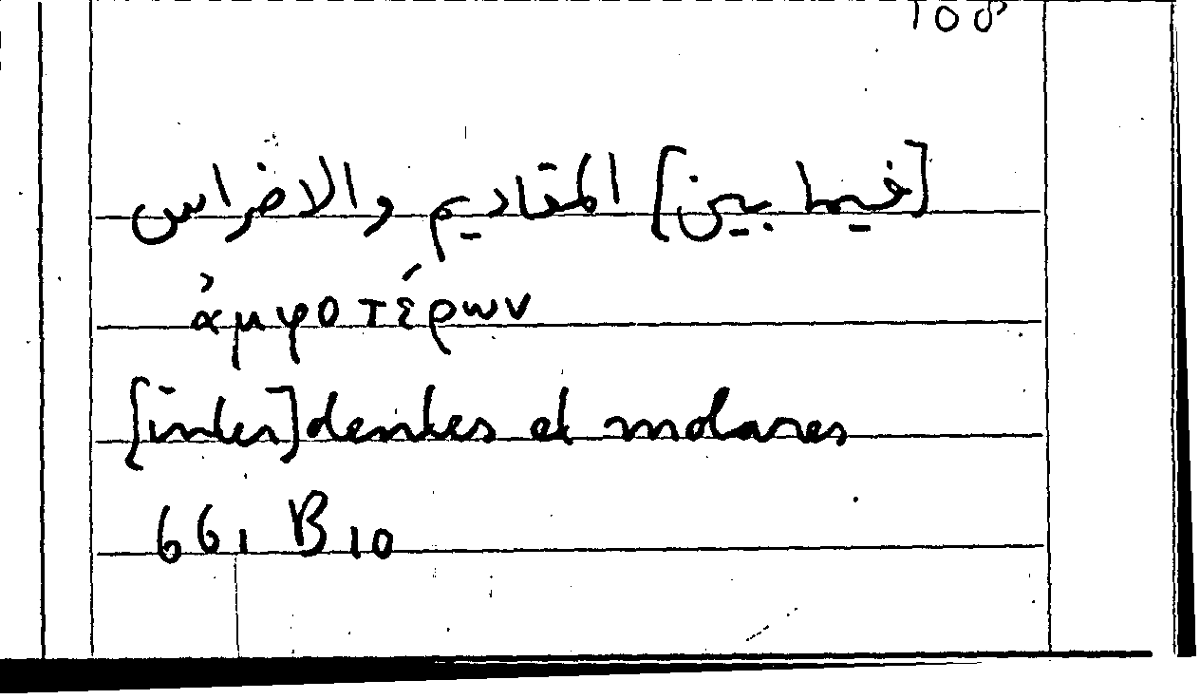 108
[فيما بين] المقاديم والاضراس
ἀμφοτέρων
[inter] dentes et molares
661 B 10